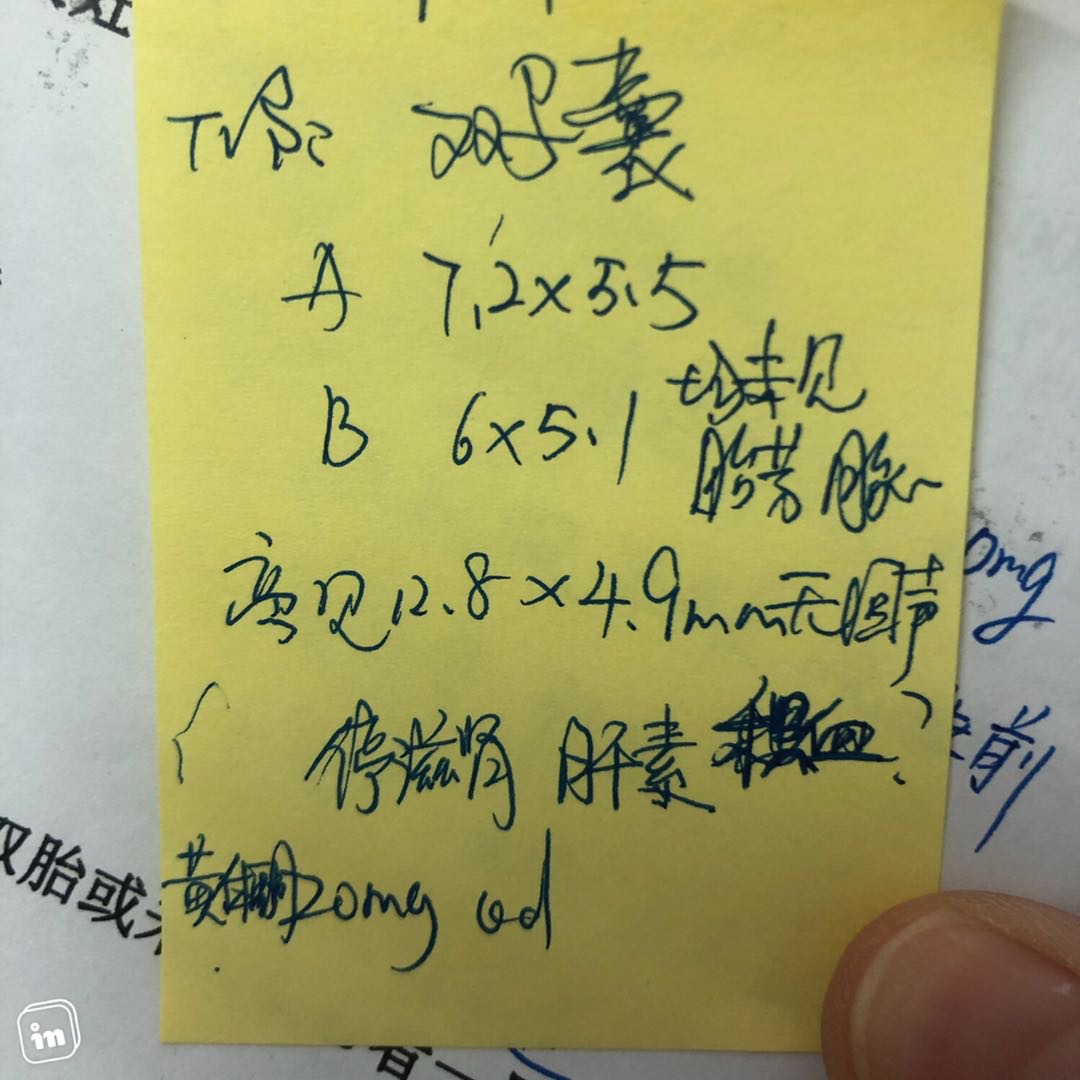 双孕囊
A 7.2×5.5
B 6×5.1 均未见
胎芽 胎心
旁见12.8×4.9mm无回声
0mg
(停滋肾 肝素 积血)
前
双胎或
黄体酮20mg qd
in